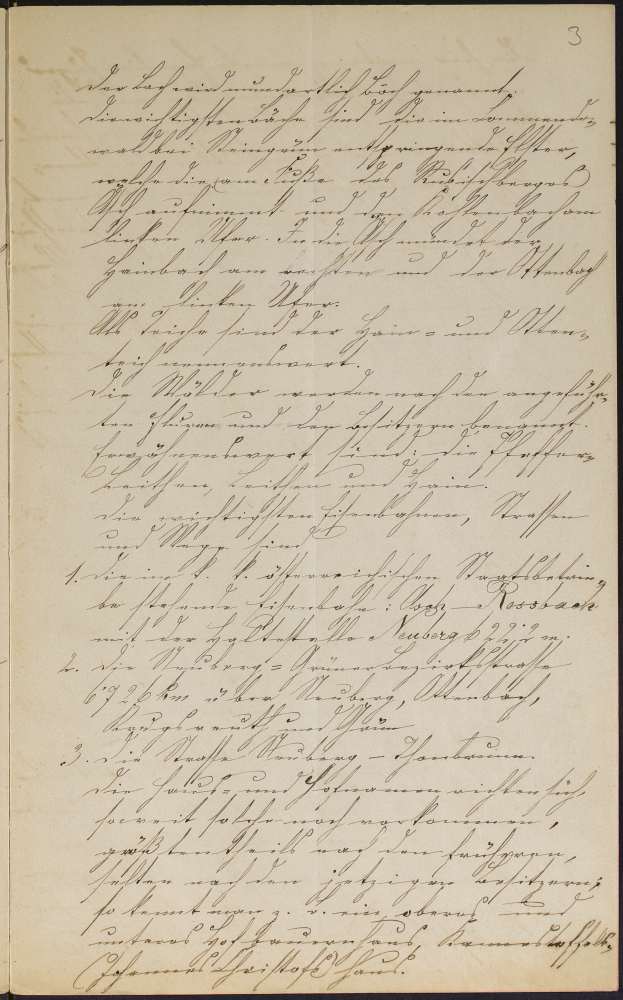 3
Der Bach wird mundartlich Bôch genannt.
Die wichtigsten Bäche sind die im Kommendo-
wald bei Steingrün entspringende Elster,
welche die am Fuße des
Asch aufnimmt und den am
linken Ufer. In die Asch mündet der
Hainbach am rechten und der Ottenbach
am linken Ufer.
Als Teiche sind der Hain- und Otten-
teich nennenswert.
Die Wälder werden nach den angeführ-
ten Fluren und den Besitzern benannt.
Erwähnenswert sind: die Pfaffen-
leithen, Leithen und Hain.
Die wichtigsten Eisenbahnen, Strassen
und Wege sind
1. Die im k. k. österreichischen Staatsbetrie-
be stehende Eisenbahn: Asch – Rossbach
mit der Haltestelle Neuberg 622·2 m.
2. Die Neuberg-Grüner Bezirksstrasse
6·726 km über Neuberg, Ottenbach,
Krugsreuth und Grün
3. Die Strasse Neuberg – Thonbrunn.
Die Haus- und Hofnamen richten sich,
soweit solche noch vorkommen,
größtentheils nach den früheren,
selten nach den jetzigen Besitzern;
so kennt man z. B. ein oberes und
unteres Hofbauernhaus,
Johannes Christofs Haus.